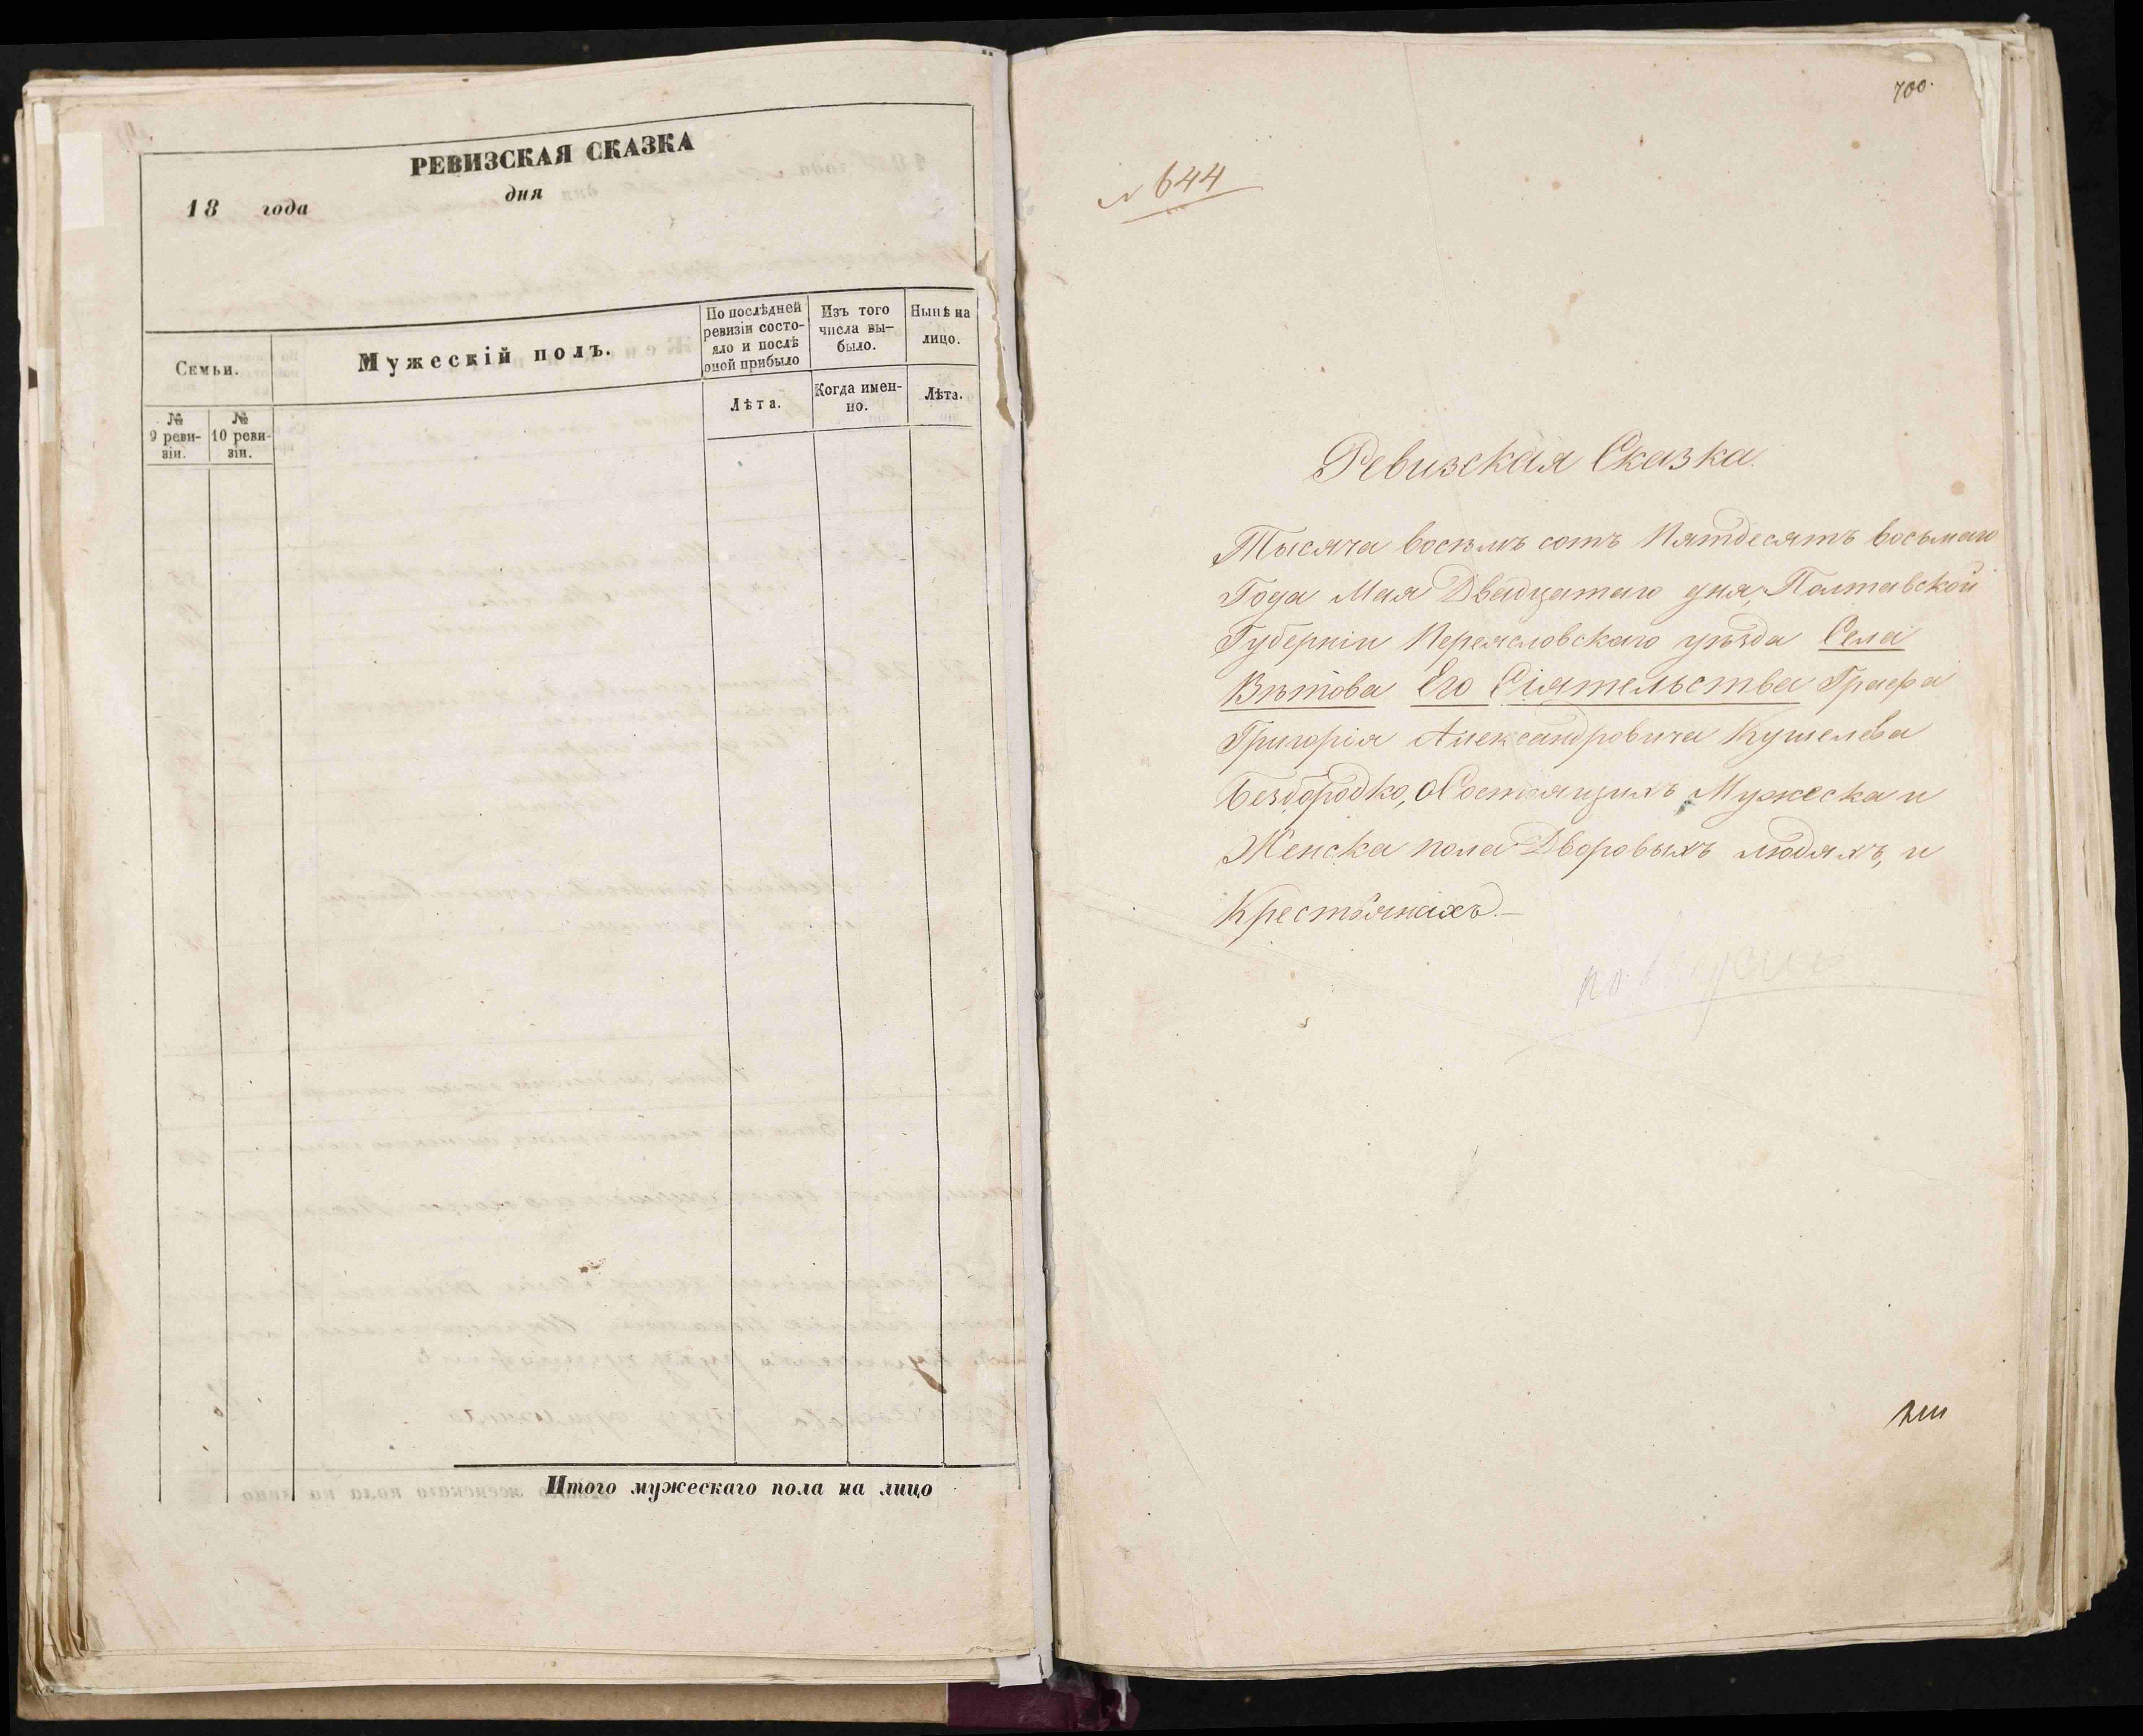 РЕВИЗСКАЯ СКАЗКА
18 года дня
Семьи.
Мужескій полъ.
По послѣдней ревизіи состо-
яло и послѣ оной прибыло
Изъ того числа вы-
было.
Нынѣ на лицо.
№ 9 реви-
зіи.
№ 10 реви-
зіи.
Лѣта.
Когда имен-
но.
Лѣта.
Итого мужескаго пола на лицо
700.
№ 644
Ревизская Сказка.
Тысяча восемь сотъ Пятдесятъ восьмаго
Года Мая Двадцатаго дня, Полтавской
Губерніи Переясловскаго уѣзда Села
Вѣтова Его Сіятельства Графа
Григорія Александровича Кушелева
Безбородко, о Состоящихъ Мужеска и
Женска пола Дворовыхъ людяхъ, и
Крестьянахъ.—